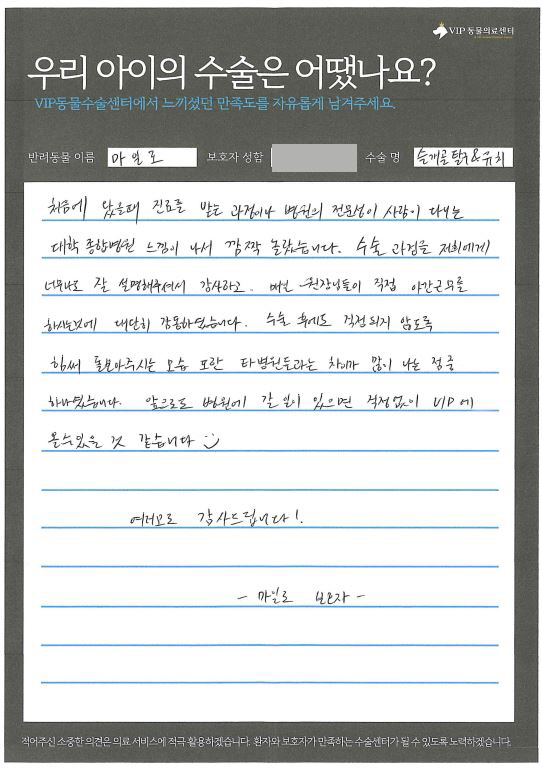 VIP 동물의료센터
우리 아이의 수술은 어땠나요?
VIP동물수술센터에서 느끼셨던 만족도를 자유롭게 남겨주세요.
반려동물 이름 마일로 보호자 성함 수술 명 슬개골탈구&유치
처음에 왔을때 진료를 받는 과정이나 병원의 전문성이 사람이 다니는
대학 종합병원 느낌이 나서 깜짝 놀랐습니다. 수술 과정을 저희에게
너무나도 잘 설명해주셔서 감사하고. 매번 원장님들이 직접 야간근무를
하시는것에 대단히 감동하였습니다. 수술 후에도 걱정되지 않도록
힘써 돌보아주시는 모습 또한 타병원들과는 차이가 많이 나는 점중
하나였습니다. 앞으로도 병원에 갈 일이 있으면 걱정없이 VIP에
올수있을 것 같습니다
여러모로 감사드립니다!.
- 마일로 보호자 -
적어주신 소중한 의견은 의료 서비스에 적극 활용하겠습니다. 환자와 보호자가 만족하는 수술센터가 될 수 있도록 노력하겠습니다.